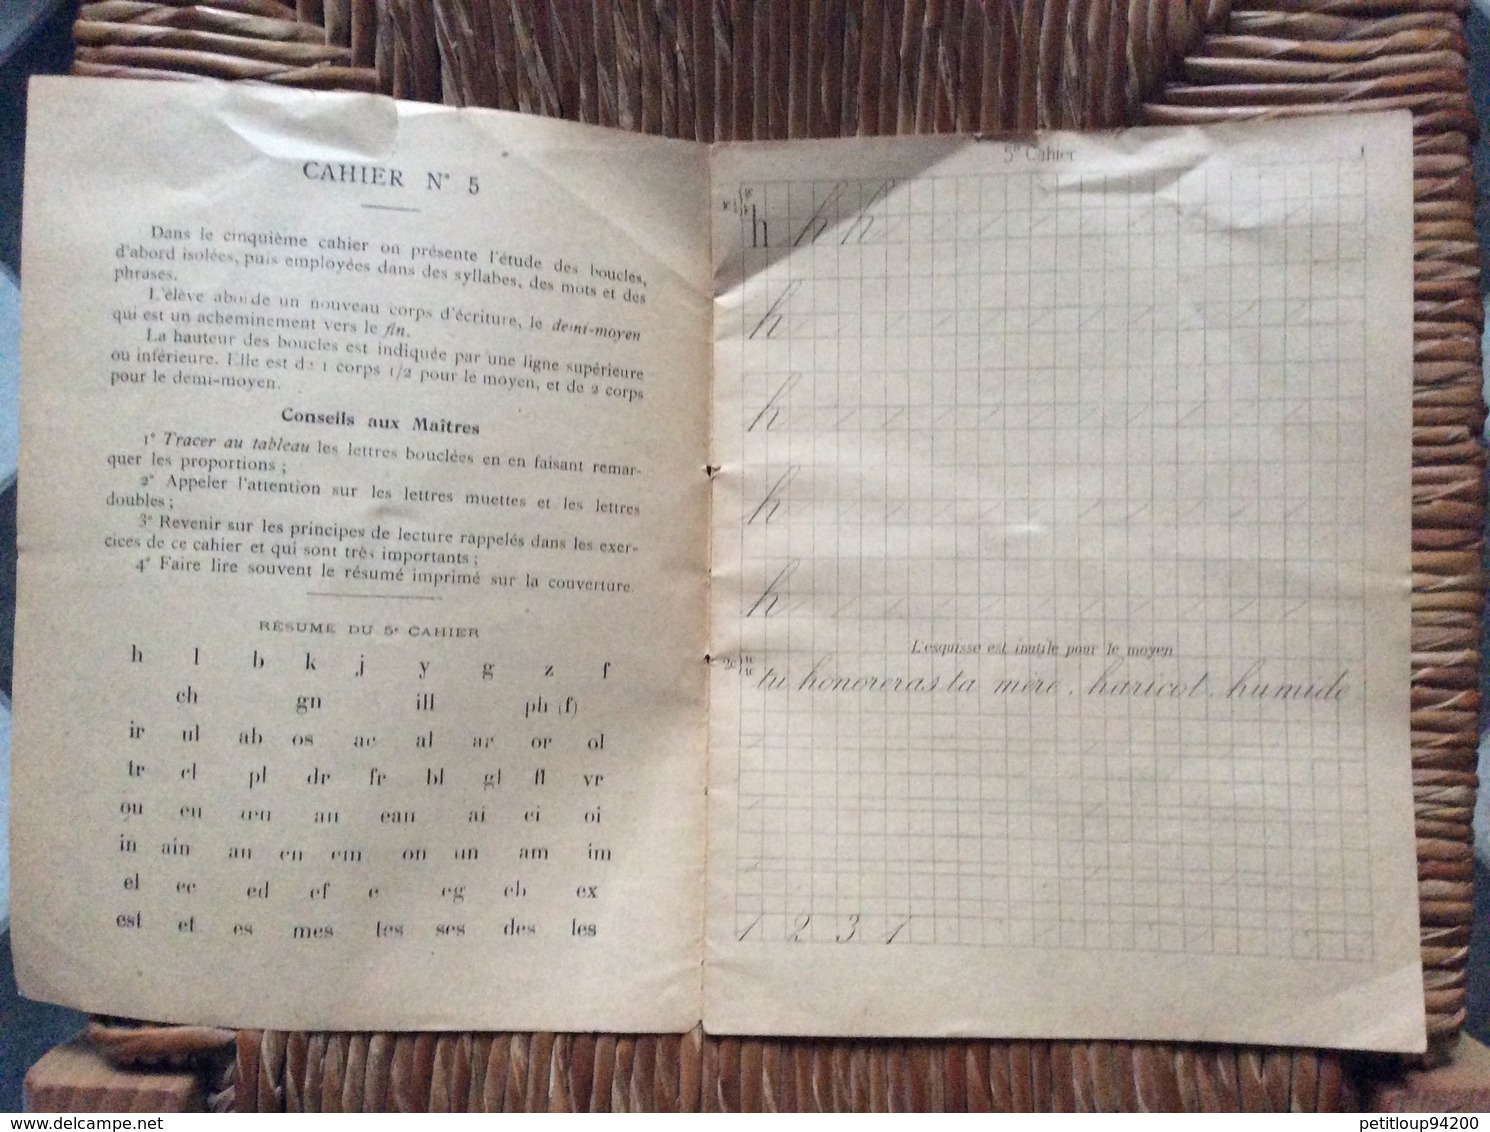 CAHIER N° 5
Dans le cinquième cahier on présente l'étude des boucles,
d'abord isolées, puis employées dans des syllabes, des mots et des
phrases.
L'élève aborde un nouveau corps d'écriture, le demi-moyen
qui est un acheminement vers le fin.
La hauteur des boucles est indiquée par une ligne supérieure
ou inférieure. Elle est de 1 corps 1/2 pour le moyen, et de 2 corps
pour le demi-moyen.
Conseils aux Maîtres
1° Tracer au tableau les lettres bouclées en en faisant remar-
quer les proportions ;
2° Appeler l'attention sur les lettres muettes et les lettres
doubles ;
3° Revenir sur les principes de lecture rappelés dans les exer-
cices de ce cahier et qui sont très importants ;
4° Faire lire souvent le résumé imprimé sur la couverture.
RÉSUMÉ DU 5e CAHIER
h l b k j y g z f
ch gn ill ph (f)
ir ul ab os ac al ar or ol
tr cl pl dr fr bl gl fl vr
ou eu œu au eau ai ei oi
in ain au en em on un am im
el ec ed ef e eg eb ex
est et es mes tes ses des les
5e Cahier 1
h h h
h
h
h
h
L'esquisse est inutile pour le moyen
tu honoreras ta mère. haricot. humide
1 2 3 1
delcampe.net
petitloup94200